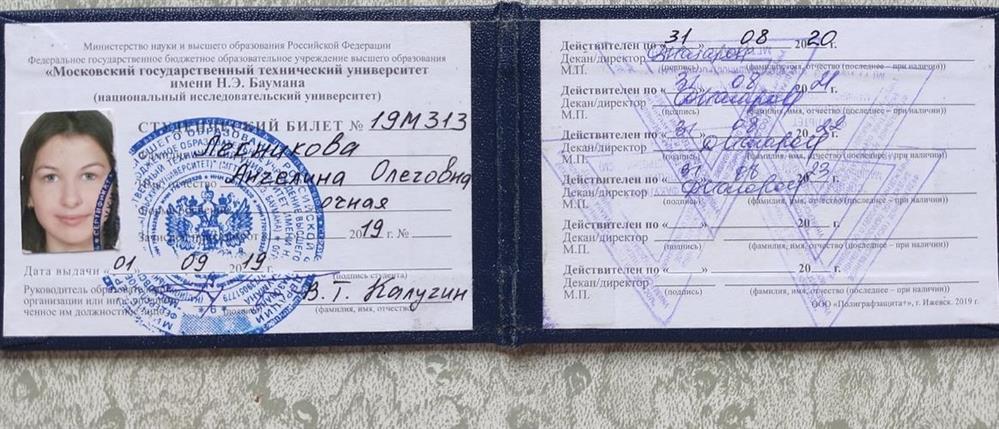 Министерство науки и высшего образования Российской Федерации
Федеральное государственное бюджетное образовательное учреждение высшего образования
«Московский государственный технический университет
имени Н.Э. Баумана
(национальный исследовательский университет)
СТУДЕНЧЕСКИЙ БИЛЕТ № 19М313
Лесникова
Ангелина Олеговна
очная
2019 г. №
Дата выдачи «01 09 2019 г.
(подпись студента)
Руководитель
организации или
ченное им должностное лицо
В.Т. Калугин
(фамилия, имя, отчество
Действителен по «31 08 2020 г.
Декан/директор
М.П. (фамилия, имя, отчество (последнее – при наличии))
Действителен по «31 08 2021 г.
Декан/директор
М.П. (подпись) (фамилия, имя, отчество (последнее – при наличии))
Действителен по «31» 08 2022 г.
Декан/директор
М.П. (подпись) (фамилия, имя, отчество (последнее – при наличии))
Действителен по «31 08 2023 г.
Декан/директор
М.П. (подпись) (фамилия, имя, отчество (последнее – при наличии))
Действителен по « » 20 г.
Декан/директор
М.П. (подпись) (фамилия, имя, отчество (последнее – при наличии))
Действителен по « » 20 г.
Декан/директор
М.П. (подпись) (фамилия, имя, отчество (последнее – при наличии))
ООО «Полиграфзащита+», г. Ижевск. 2019 г.